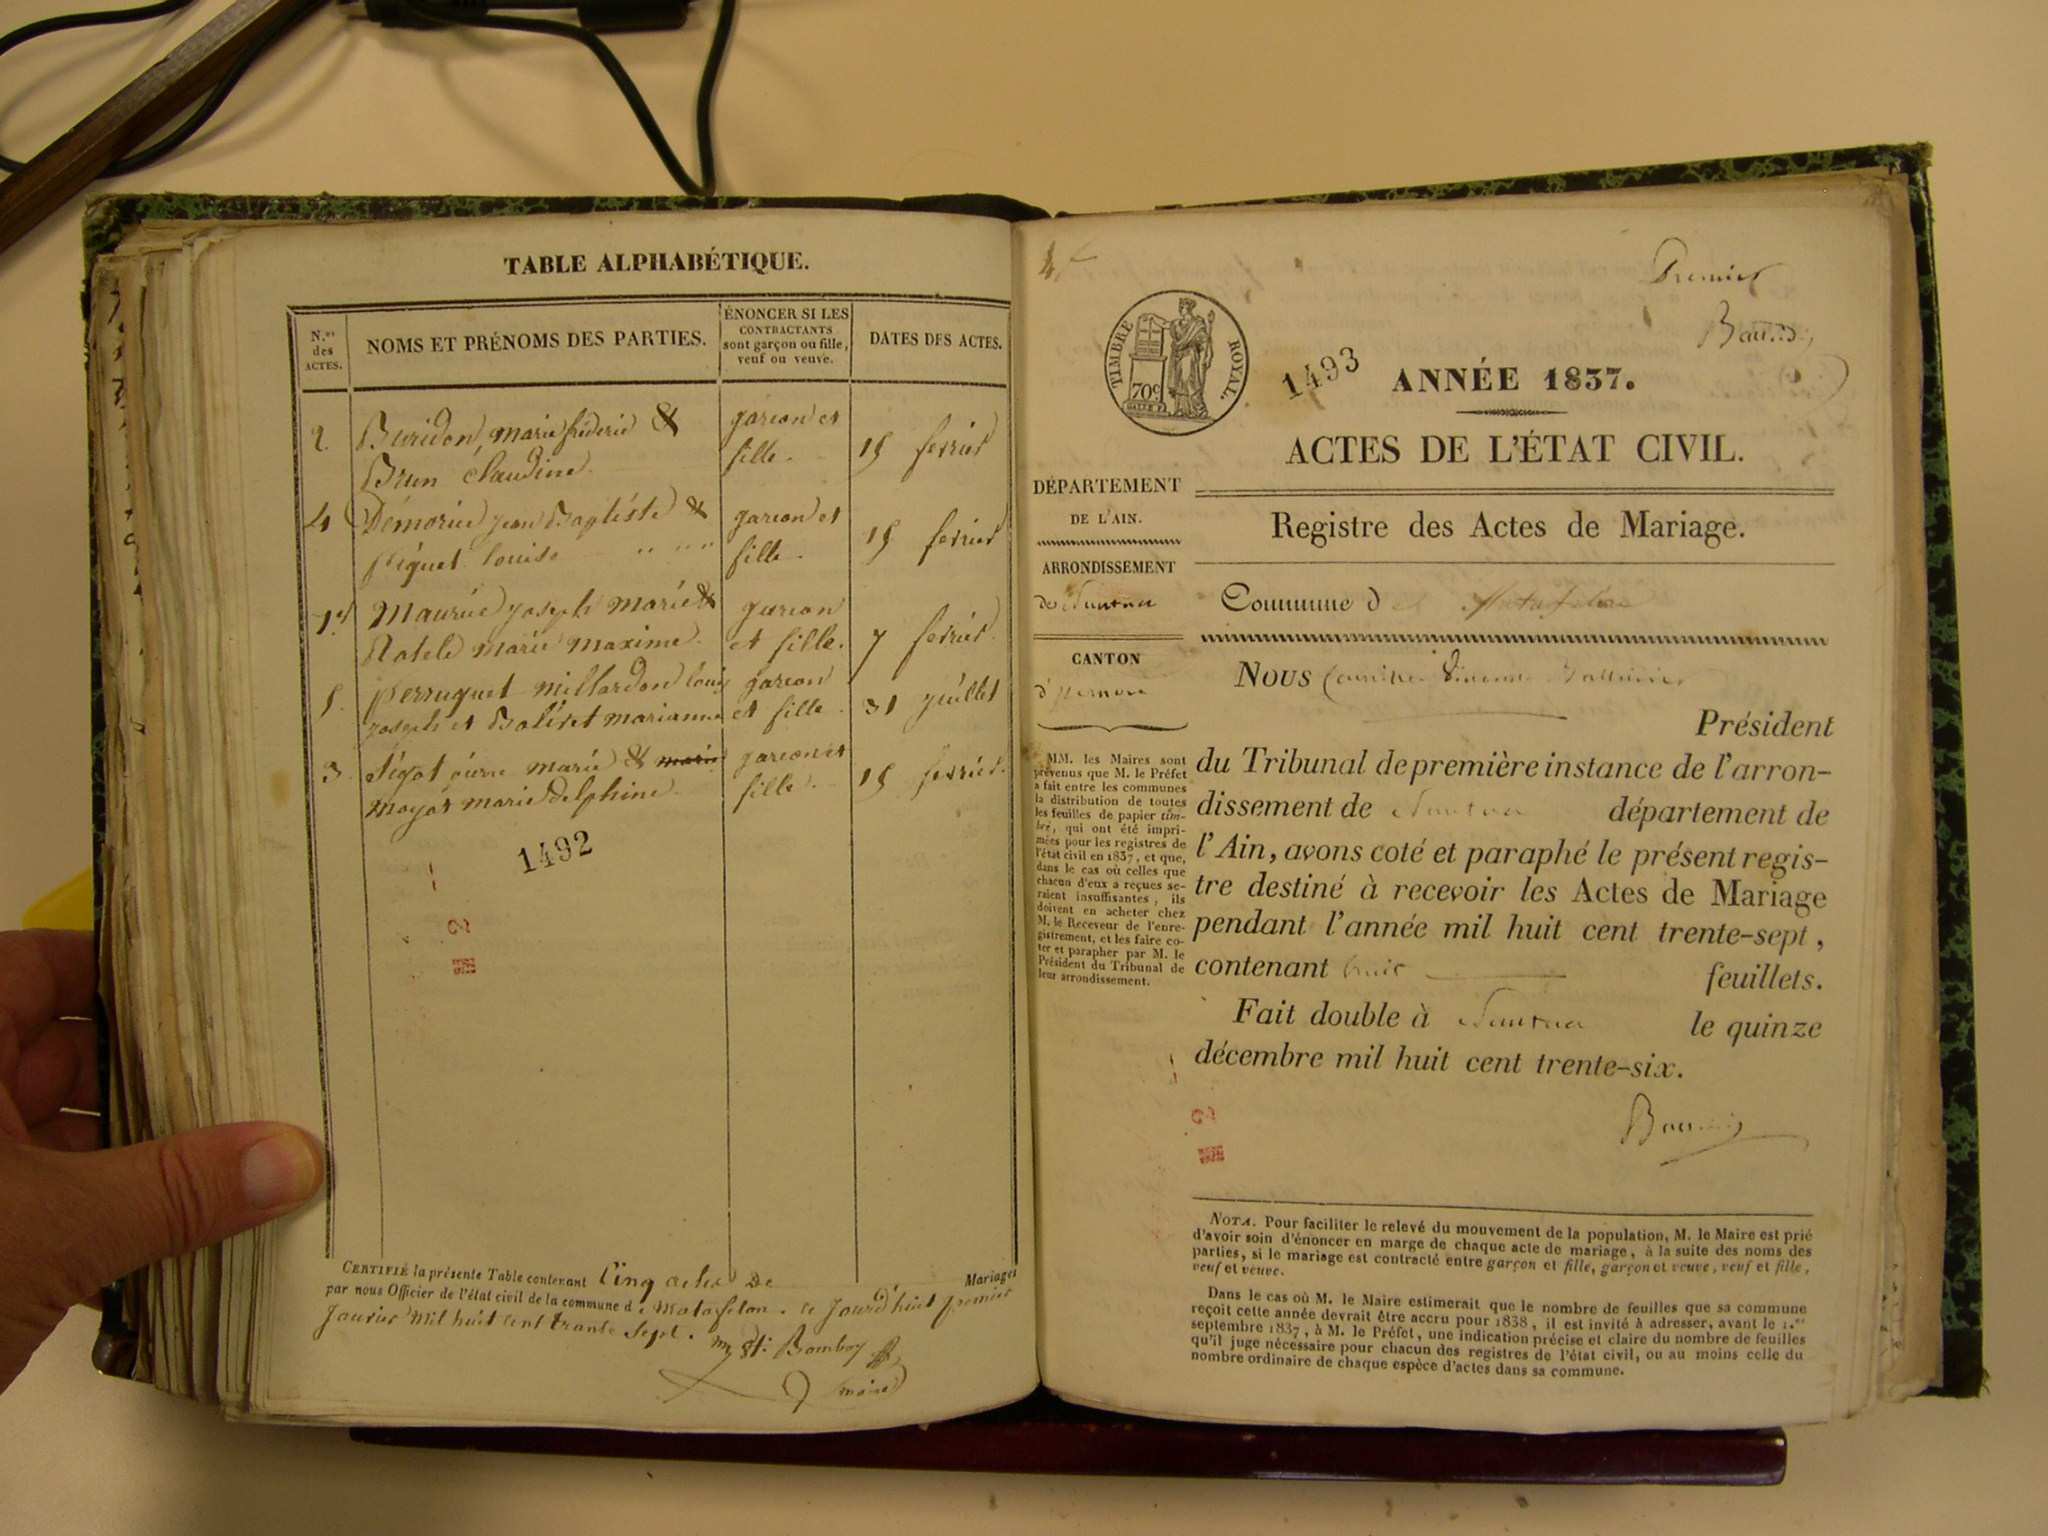 TABLE ALPHABÉTIQUE.
N.os des ACTES.
NOMS ET PRÉNOMS DES PARTIES.
ÉNONCER SI LES
CONTRACTANTS
sont garçon ou fille,
veuf ou veuve.
DATES DES ACTES.
2. Buridon marie fréderic & garcon et
Brun claudine fille. 15 fevrier
4 Démorie jean Baptiste & garcon et
piquet louise fille. 15 fevrier
1er Maurice joseph marie & garcon
marie maxime. et fille. 7 fevrier.
5. perruquet millardon louis garcon
joseph et marianne et fille. 31 juillet
3. pierre marie & marie garcon et
marie delphine. fille. 15 fevrier.
1492
CERTIFIÉ la présente Table contenant Cinq actes de Mariages
par nous Officier de l'état civil de la commune d e Matafelon. ce jourd'huit premier
Janvier Mil huit cent trante sept.
Bomboy
maire
Premier
TIMBRE ROYAL.
70c
1493
ANNÉE 1837.
ACTES DE L'ÉTAT CIVIL.
DÉPARTEMENT
DE L'AIN.
ARRONDISSEMENT
de Nantua
CANTON
d'
Registre des Actes de Mariage.
Commune d e Matafelon
NOUS
Président
du Tribunal de première instance de l'arron-
dissement de Nantua département de
l'Ain, avons coté et paraphé le présent regis-
tre destiné à recevoir les Actes de Mariage
pendant l'année mil huit cent trente-sept,
contenant huit feuillets.
Fait double à Nantua le quinze
décembre mil huit cent trente-six.
MM. les Maires sont
prévenus que M. le Préfet
a fait entre les communes
la distribution de toutes
les feuilles de papier tim-
bré, qui ont été impri-
mées pour les registres de
l'état civil en 1837, et que,
dans le cas où celles que
chacun d'eux a reçues se-
raient insuffisantes, ils
doivent en acheter chez
M. le Receveur de l'enre-
gistrement, et les faire co-
ter et parapher par M. le
Président du Tribunal de
leur arrondissement.
NOTA. Pour faciliter le relevé du mouvement de la population, M. le Maire est prié
d'avoir soin d'énoncer en marge de chaque acte de mariage, à la suite des noms des
parties, si le mariage est contracté entre garçon et fille, garçon et veuve, veuf et fille,
veuf et veuve.
Dans le cas où M. le Maire estimerait que le nombre de feuilles que sa commune
reçoit cette année devrait être accru pour 1838, il est invité à adresser, avant le 1.er
septembre 1837, à M. le Préfet, une indication précise et claire du nombre de feuilles
qu'il juge nécessaire pour chacun des registres de l'état civil, ou au moins celle du
nombre ordinaire de chaque espèce d'actes dans sa commune.